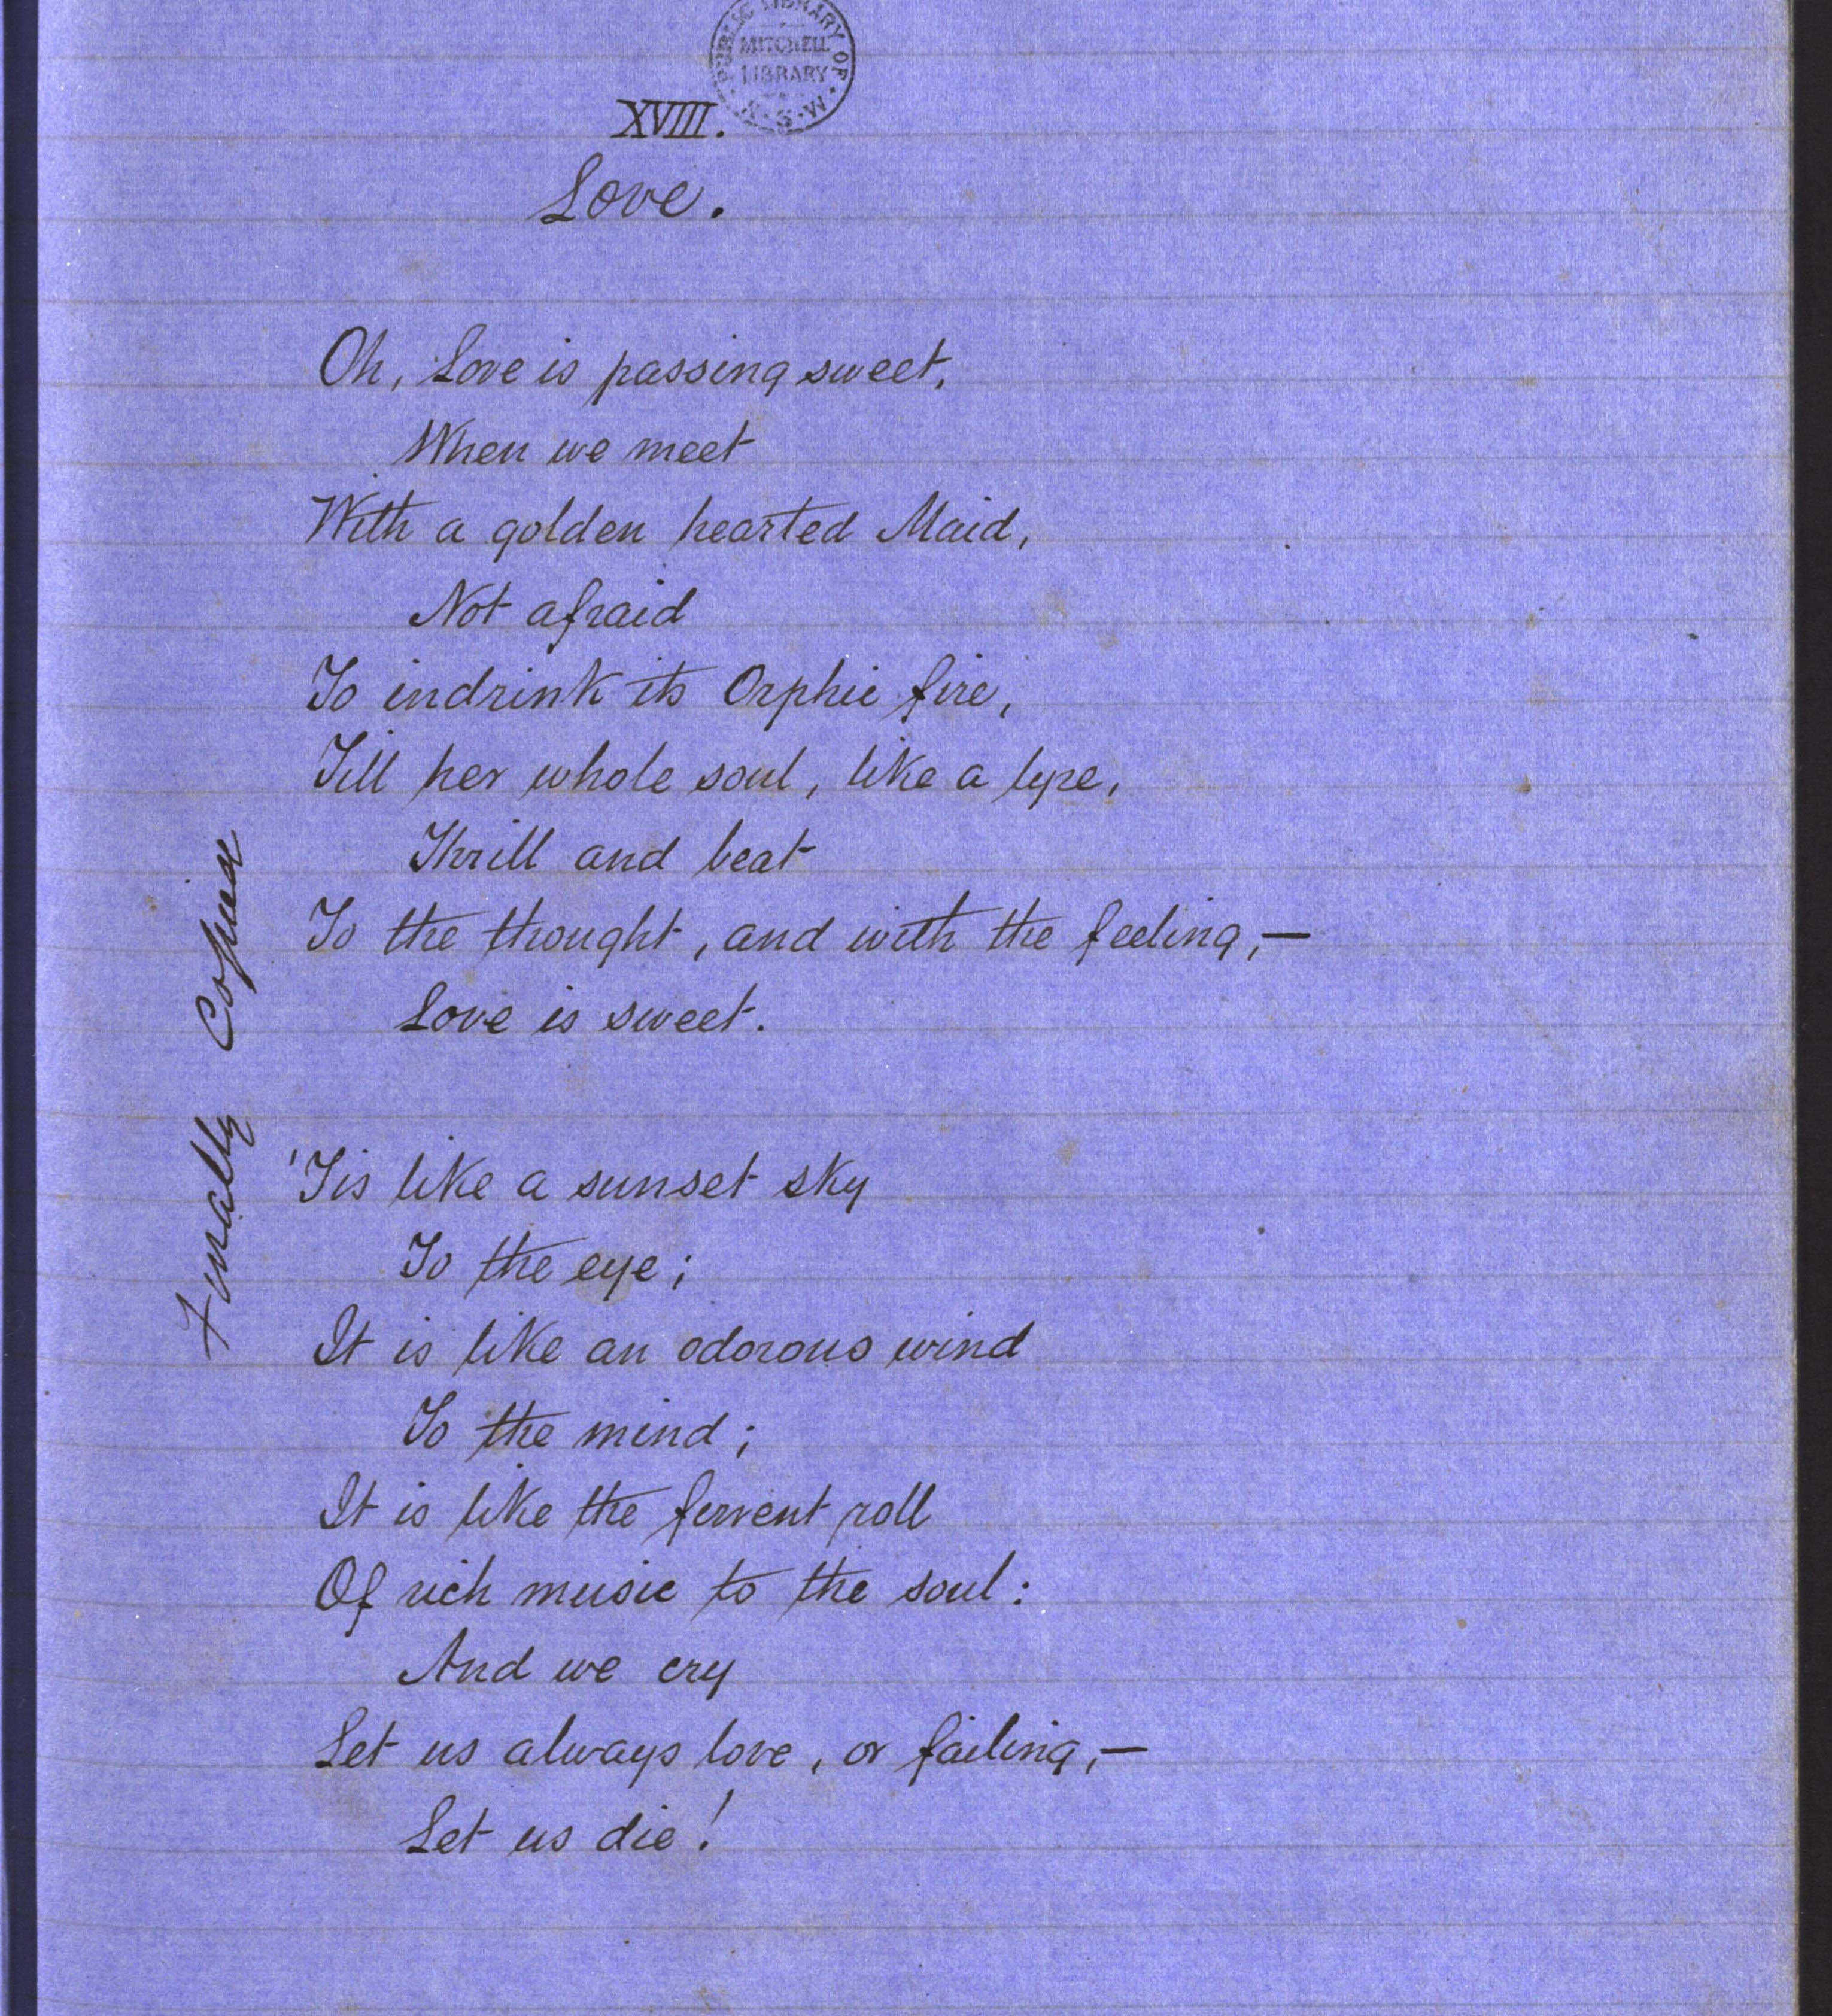 PUBLIC LIBRARY OF N.S.W.
MITCHELL
LIBRARY
XVIII.
Love.
Oh, Love is passing sweet,
When we meet
With a golden hearted Maid,
Not afraid
To indrink its Orphic fire,
Till her whole soul, like a lyre,
Thrill and beat
To the thought, and with the feeling,—
Love is sweet.
'Tis like a sunset sky
To the eye;
It is like an odorous wind
To the mind;
It is like the fervent roll
Of rich music to the soul:
And we cry
Let us always love, or failing,—
Let us die!
Finally Copied